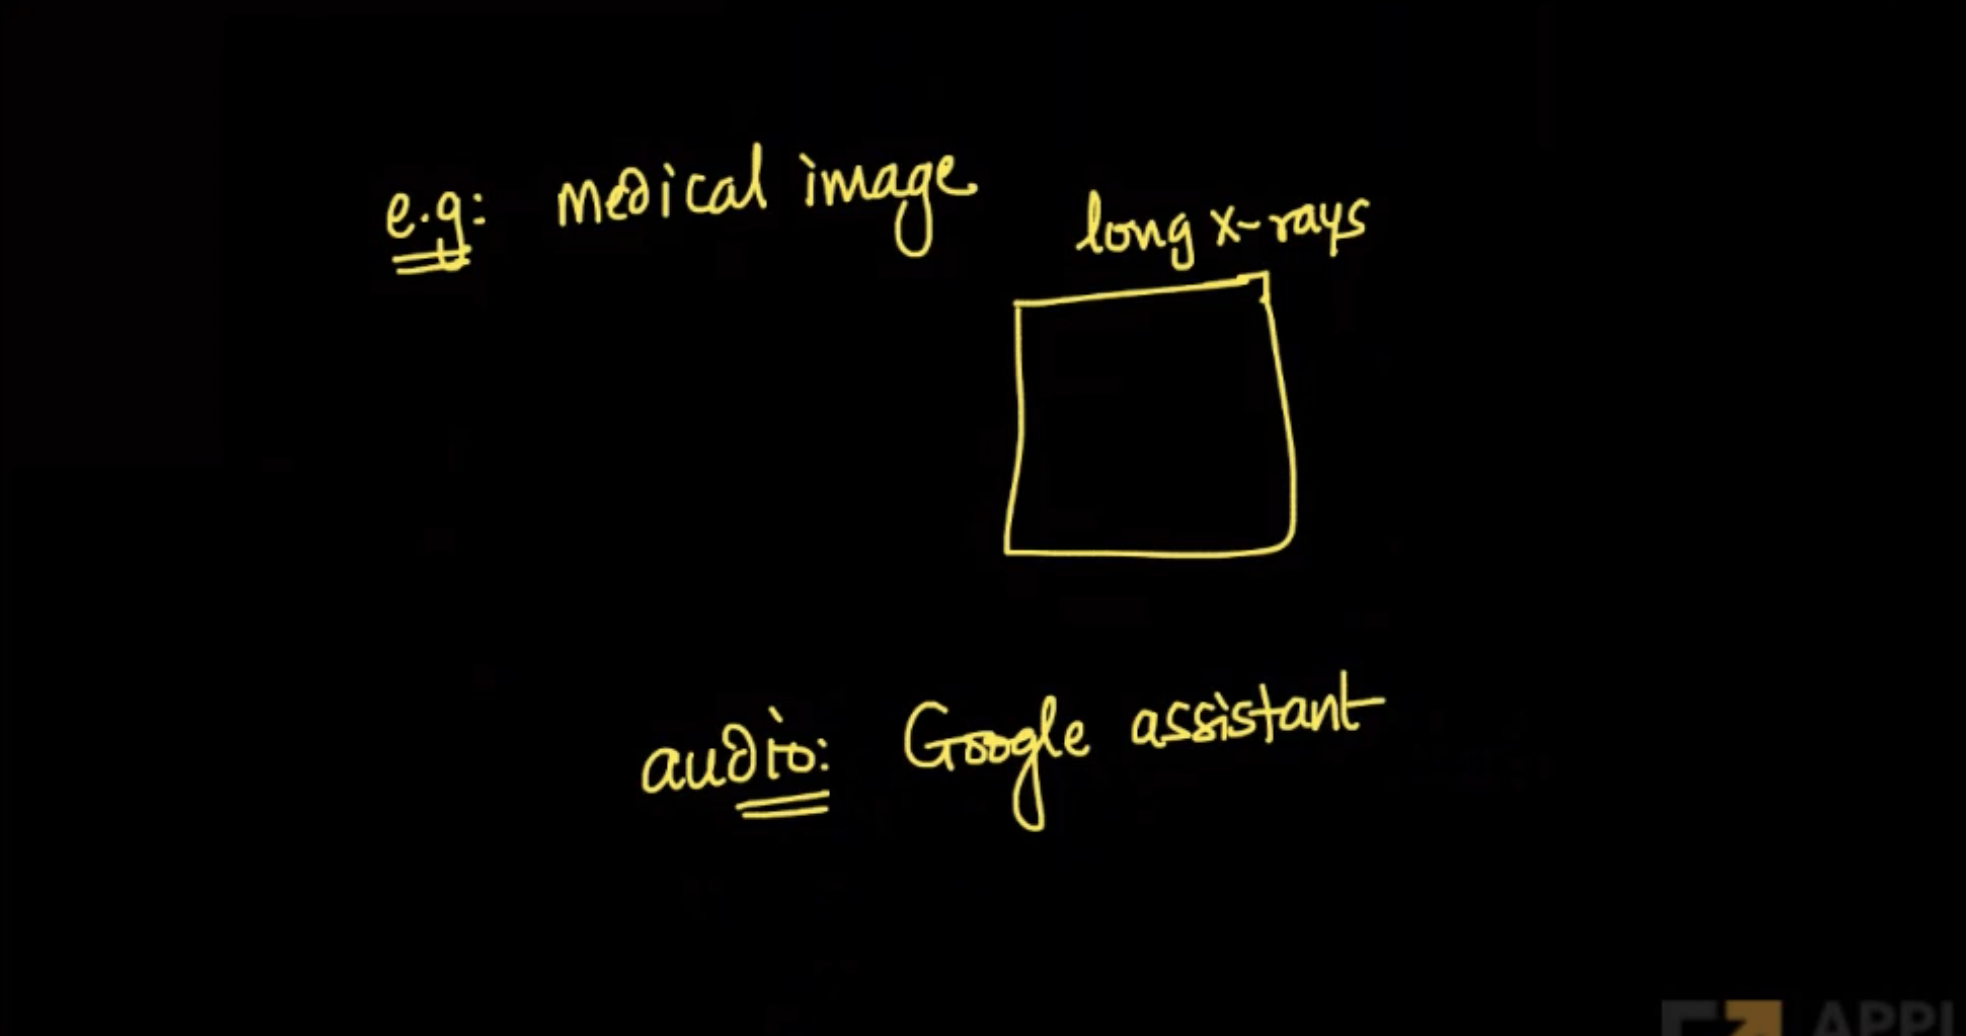 e.g: medical image
long x-rays
audio: Google assistant
APPL